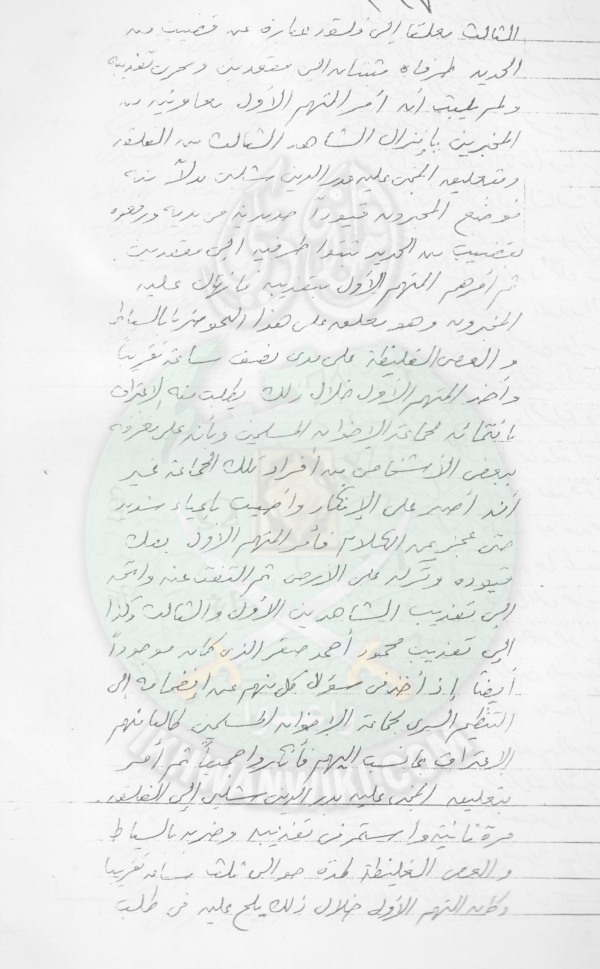 الثالث معلقا إلى فلقه عبارة عن قضيب من
الحديد طرفاه مثبتان الى مقعدين وجرى تعذيبه
ولم يلبث أن أمر المتهم الأول معاونيه من
المخبرين بإنزال الشاهد الثالث من الفلقه
وبتعليق المجنى عليه بدر الدين شلبى بدلاً منه
فوضع المخبرون قيوداً حديدية فى يديه ورفعوه
بقضيب من الحديد ثبتوا طرفيه إلى مقعدين
ثم أمرهم المتهم الأول بتعذيبه فانهال عليه
المخبرون وهو معلق على هذا النحو ضربا بالسياط
والعصى الغليظة على مدى نصف ساعة تقريباً
وأخذ المتهم الأول خلال ذلك يطلب منه الإعتراف
بانتمائه لجماعة الاخوان المسلمين وبأنه على معرفه
ببعض الأشخاص من أفراد تلك الجماعة غير
أنه أصر على الإنكار وأصيب بإعياء شديد
حتى عجز عن الكلام فأمر المتهم الأول بفك
قيوده وتركه على الأرض ثم التفت عنه واتجه
إلى تعذيب الشاهدين الأول والثالث وكذا
إلى تعذيب محمود أحمد صقر الذى كان موجوداً
أيضاً إذ أخذ فى سؤال كل منهم عن إنضمامه إلى
التنظيم السرى لجماعة الاخوان المسلمين طالبا منهم
الاعتراف بما نسب اليهم فأنكروا جميعاً ثم أمر
بتعليق المجنى عليه بدر الدين شلبى إلى الفلقه
مرة ثانية واستمر فى تعذيبه وضربه بالسياط
والعصى الغليظة لمدة حوالى ثلث ساعة تقريبا
وكان المتهم الأول خلال ذلك يلح عليه فى طلب
IKHWANWIKI.COM